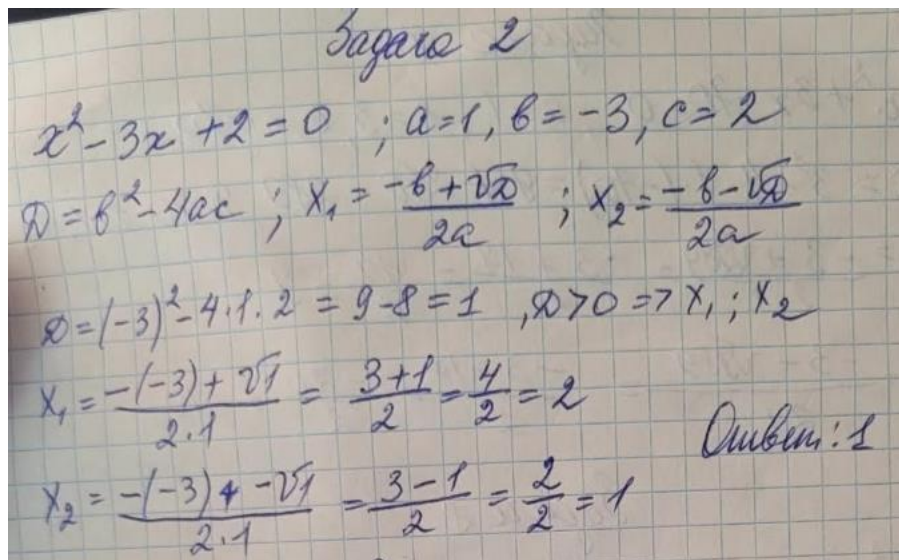 Задача 2
x² - 3x + 2 = 0 ; a = 1, b = -3, c = 2
D = b² - 4ac ; x₁ = (-b + √D)/(2a) ; x₂ = (-b - √D)/(2a)
D = (-3)² - 4·1·2 = 9 - 8 = 1 , D > 0 => x₁ ; x₂
x₁ = (-(-3) + √1)/(2·1) = (3 + 1)/2 = 4/2 = 2
Ответ: 1
x₂ = (-(-3) - √1)/(2·1) = (3 - 1)/2 = 2/2 = 1